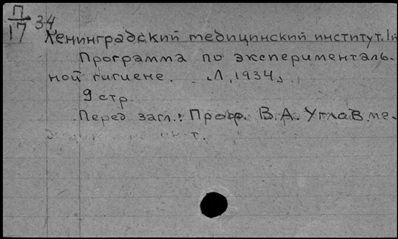 П
17
34
Ленинградский медицинский институт. 1й
Программа по эксперименталь-
ной гигиене. Л, 1934.
9 стр
Перед загл.: Проф. В. А. Углов